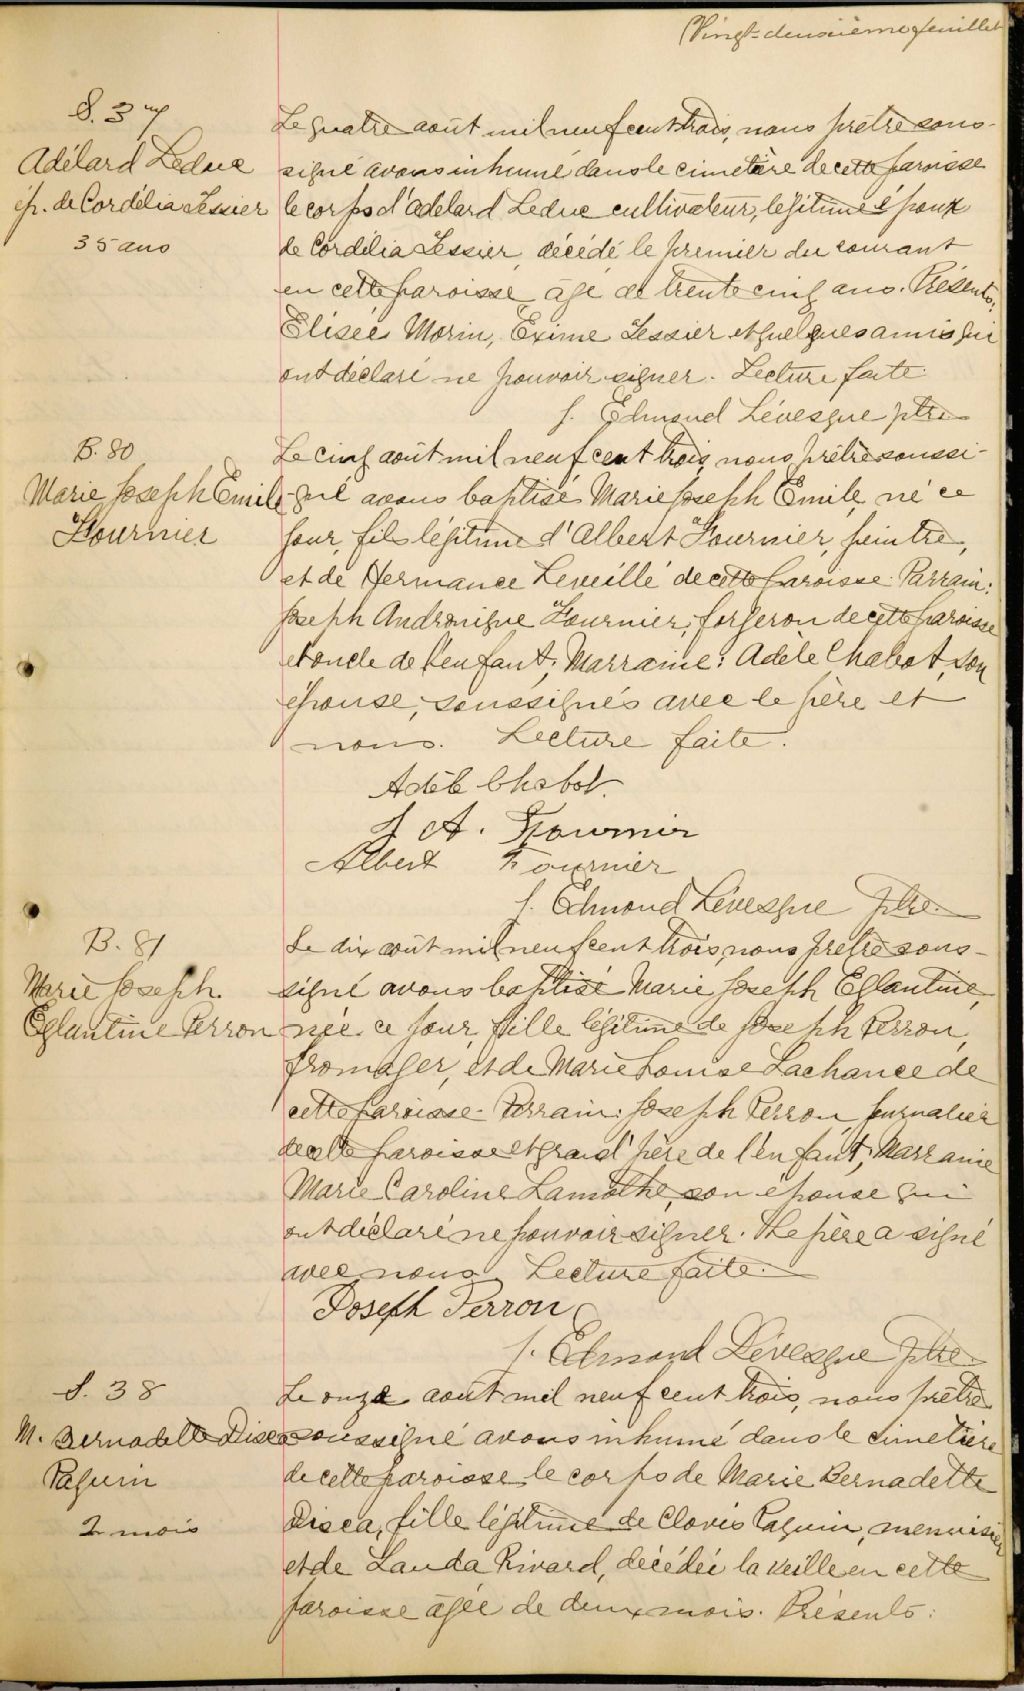 Vingt-deuxième feuillet
S. 37
Adélard Leduc
ép. de Cordélia Tessier
35 ans
Le quatre août mil neuf cent trois, nous prêtre sous-
signé avons inhumé dans le cimetière de cette paroisse
le corps d'Adélard Leduc cultivateur, légitime époux
de Cordélia Tessier, décédé le premier du courant
en cette paroisse, âgé de trente cinq ans. Présents:
Elisée Morin, Exime Tessier et quelques amis qui
ont déclaré ne pouvoir signer. Lecture faite.
J. Edmond Lévesque ptre
B. 80
Marie Joseph Emile
Fournier
Le cinq août mil neuf cent trois, nous prêtre soussi-
-gné avons baptisé Marie Joseph Emile, né ce
jour, fils légitime d'Albert Fournier, peintre,
et de Hermance Leveillé de cette paroisse. Parrain:
Joseph Andronique Fournier, forgeron de cette paroisse
et oncle de l'enfant; Marraine: Adèle Chabot, son
épouse, soussignés avec le père et
nous. Lecture faite.
Adèle Chabot.
J A. Fournier
Albert Fournier
J. Edmond Lévesque ptre.
B. 81
Marie Joseph.
Eglantine Perron
Le dix août mil neuf cent trois, nous prêtre sous-
signé avons baptisé Marie Joseph Eglantine,
née ce jour, fille légitime de Joseph Perron,
fromager, et de Marie Louise Lachance de
cette paroisse. Parrain: Joseph Perron, journalier
de cette paroisse et grand'père de l'enfant; Marraine
Marie Caroline Lamothe, son épouse qui
ont déclaré ne pouvoir signer. Le père a signé
avec nous. Lecture faite.
Joseph Perron
J. Edmond Lévesque ptre.
S. 38
M. Bernadette Disca
Paquin
2 mois
Le onze août mil neuf cent trois, nous prêtre
soussigné avons inhumé dans le cimetière
de cette paroisse le corps de Marie Bernadette
Disca, fille légitime de Clovis Paquin, menuisier
et de Lauda Rivard, décédée la veille en cette
paroisse âgée de deux mois. Présents: